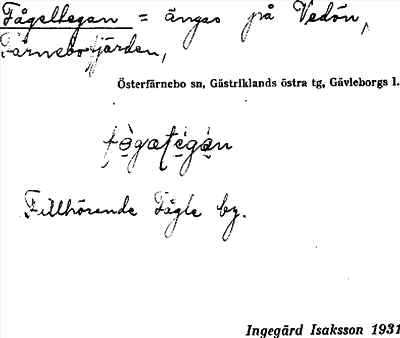 Fågeltegan = ängar på Vedön,
Färnebofjärden,
Österfärnebo sn, Gästriklands östra tg, Gävleborgs l.
Tillhörande Fågle by.
Ingegärd Isaksson 1931